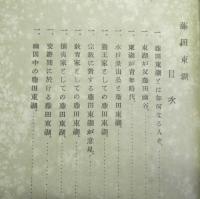 藤田東湖
目次
一 藤田東湖とは如何なる人ぞ、
一 東湖が父藤田幽谷、
一 東湖が青年時代、
一 水戸景山公と藤田東湖、
一 勤王家としての藤田東湖、
一 宗教に對する藤田東湖が意見、
一 教育家としての藤田東湖、
一 攘夷家としての藤田東湖、
一 安政間に於ける藤田東湖、
一 幽囚中の藤田東湖、